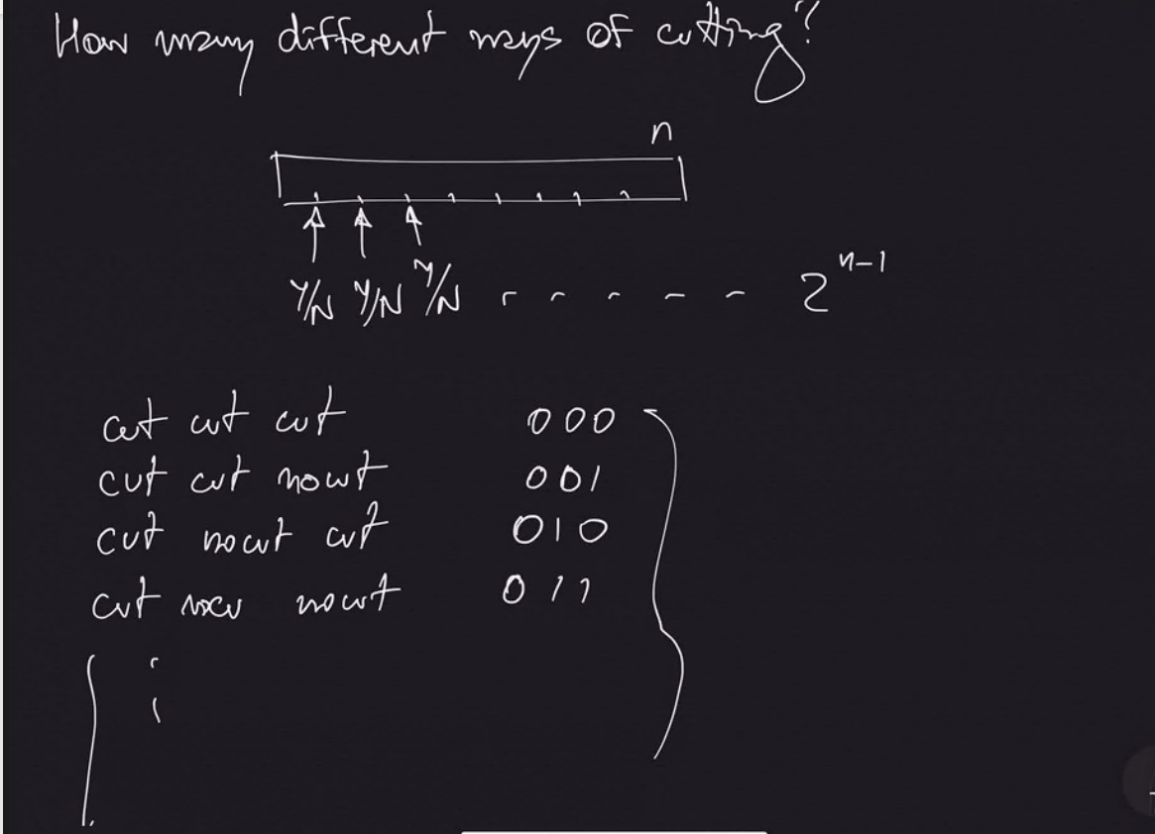 How many different ways of cutting?
n
Y/N Y/N Y/N - - - - - - 2^{n-1}
cut cut cut 000
cut cut nocut 001
cut nocut cut 010
cut nocu nocut 011